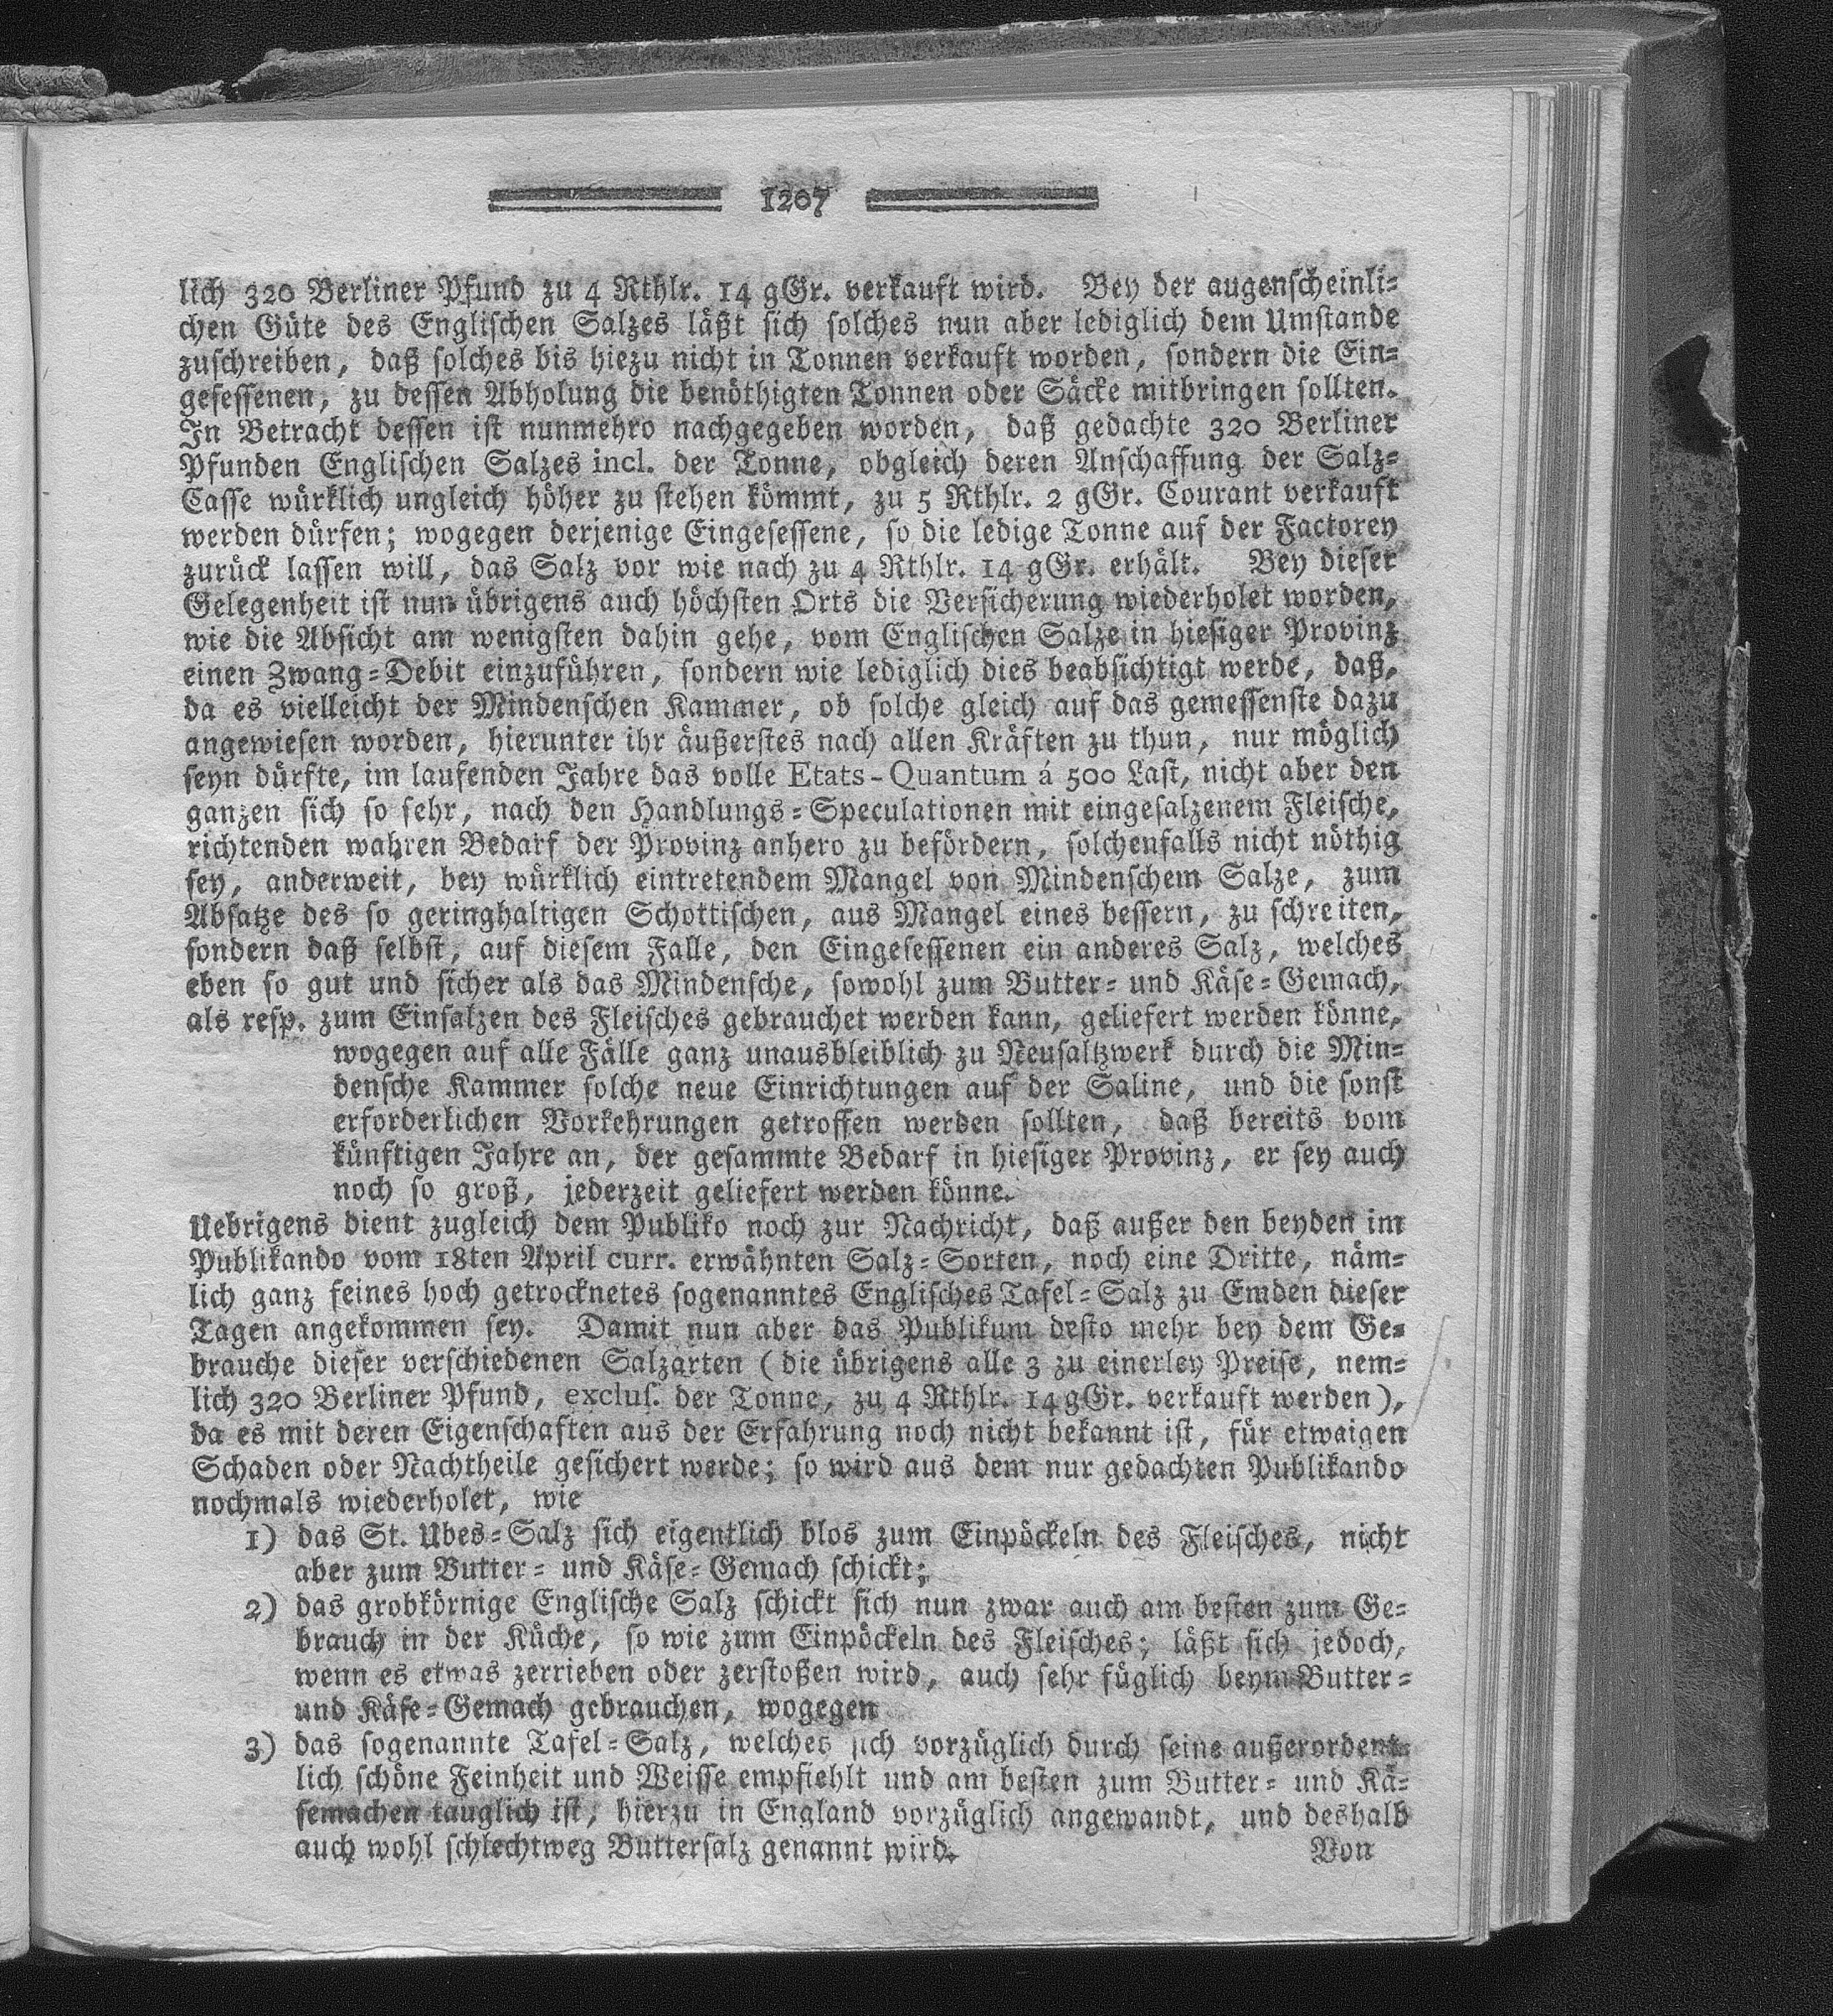 1207
lich 320 Berliner Pfund zu 4 Rthlr. 14 gGr. verkauft wird. Bey der augenscheinli-
chen Güte des Englischen Salzes läßt sich solches nun aber lediglich dem Umstande
zuschreiben, daß solches bis hiezu nicht in Tonnen verkauft worden, sondern die Ein-
gesessenen, zu dessen Abholung die benöthigten Tonnen oder Säcke mitbringen sollten.
In Betracht dessen ist nunmehro nachgegeben worden, daß gedachte 320 Berliner
Pfunden Englischen Salzes incl. der Tonne, obgleich deren Anschaffung der Salz-
Casse würklich ungleich höher zu stehen kömmt, zu 5 Rthlr. 2 gGr. Courant verkauft
werden dürfen; wogegen derjenige Eingesessene, so die ledige Tonne auf der Factorey
zurück lassen will, das Salz vor wie nach zu 4 Rthlr. 14 gGr. erhält. Bey dieser
Gelegenheit ist nun übrigens auch höchsten Orts die Versicherung wiederholet worden,
wie die Absicht am wenigsten dahin gehe, vom Englischen Salze in hiesiger Provinz
einen Zwang-Debit einzuführen, sondern wie lediglich dies beabsichtigt werde, daß,
da es vielleicht der Mindenschen Kammer, ob solche gleich auf das gemessenste dazu
angewiesen worden, hierunter ihr äußerstes nach allen Kräften zu thun, nur möglich
seyn dürfte, im laufenden Jahre das volle Etats-Quantum á 500 Last, nicht aber den
ganzen sich so sehr, nach den Handlungs-Speculationen mit eingesalzenem Fleische,
richtenden wahren Bedarf der Provinz anhero zu befördern, solchenfalls nicht nöthig
sey, anderweit, bey würklich eintretendem Mangel von Mindenschem Salze, zum
Absatze des so geringhaltigen Schottischen, aus Mangel eines bessern, zu schreiten,
sondern daß selbst, auf diesem Falle, den Eingesessenen ein anderes Salz, welches
eben so gut und sicher als das Mindensche, sowohl zum Butter- und Käse-Gemach,
als resp. zum Einsalzen des Fleisches gebrauchet werden kann, geliefert werden könne,
wogegen auf alle Fälle ganz unausbleiblich zu Neusaltzwerk durch die Min-
densche Kammer solche neue Einrichtungen auf der Saline, und die sonst
erforderlichen Vorkehrungen getroffen werden sollten, daß bereits vom
künftigen Jahre an, der gesammte Bedarf in hiesiger Provinz, er sey auch
noch so groß, jederzeit geliefert werden könne.
Uebrigens dient zugleich dem Publiko noch zur Nachricht, daß außer den beyden im
Publikando vom 18ten April curr. erwähnten Salz-Sorten, noch eine Dritte, näm-
lich ganz feines hoch getrocknetes sogenanntes Englisches Tafel-Salz zu Emden dieser
Tagen angekommen sey. Damit nun aber das Publikum desto mehr bey dem Ge-
brauche dieser verschiedenen Salzarten (die übrigens alle 3 zu einerley Preise, nem-
lich 320 Berliner Pfund, exclus. der Tonne, zu 4 Rthlr. 14 gGr. verkauft werden),
da es mit deren Eigenschaften aus der Erfahrung noch nicht bekannt ist, für etwaigen
Schaden oder Nachtheile gesichert werde; so wird aus dem nur gedachten Publikando
nochmals wiederholet, wie
1) das St. Ubes-Salz sich eigentlich blos zum Einpöckeln des Fleisches, nicht
aber zum Butter- und Käse-Gemach schickt;
2) das grobkörnige Englische Salz schickt sich nun zwar auch am besten zum Ge-
brauch in der Küche, so wie zum Einpöckeln des Fleisches; läßt sich jedoch,
wenn es etwas zerrieben oder zerstoßen wird, auch sehr füglich beym Butter-
und Käse-Gemach gebrauchen, wogegen
3) das sogenannte Tafel-Salz, welches sich vorzüglich durch seine außerordent-
lich schöne Feinheit und Weisse empfiehlt und am besten zum Butter- und Kä-
semachen tauglich ist, hierzu in England vorzüglich angewandt, und deshalb
auch wohl schlechtweg Buttersalz genannt wird.
Von